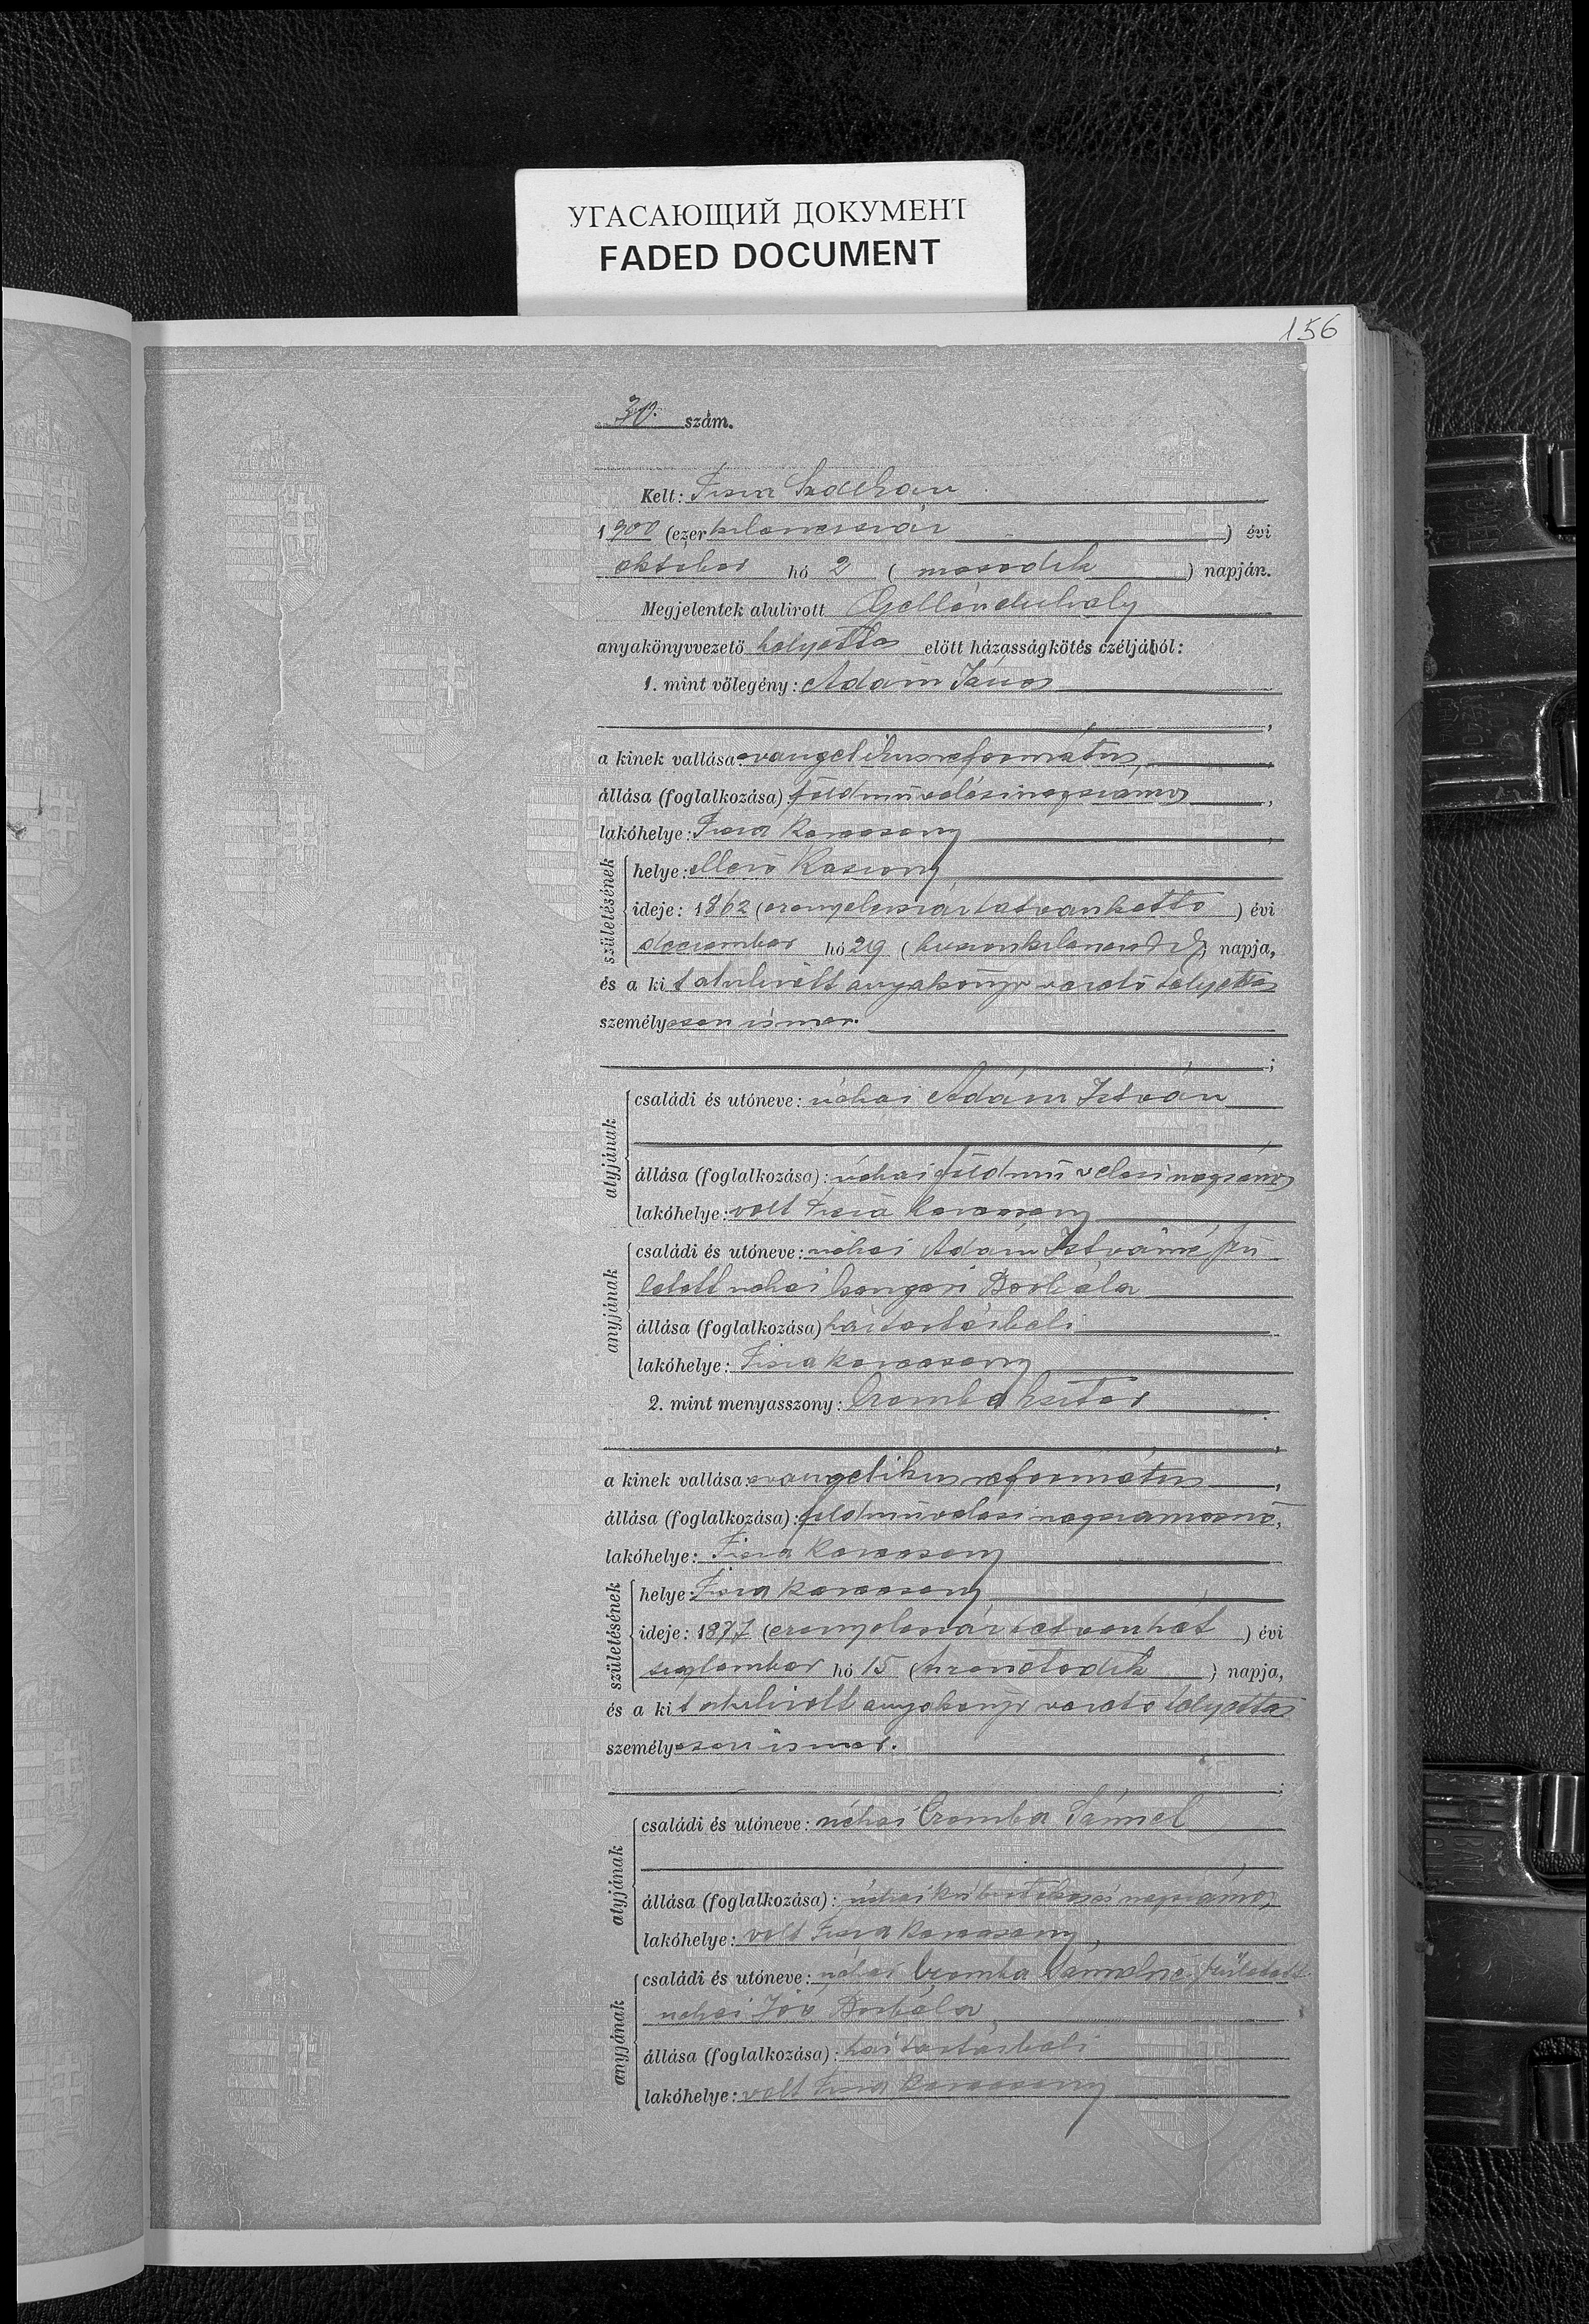 УГАСАЮЩИЙ ДОКУМЕНТ
FADED DOCUMENT
156
30. szám.
Kelt: Tisza
1900 (ezer kilenczszáz) évi
oktober hó 2 (masodik) napján.
Megjelentek alulirott
anyakönyvvezető helyettes előtt házasságkötés czéljából:
1. mint vőlegény: Ádám János
a kinek vallása: evangelikus református,
állása (foglalkozása): földmüvelési napszamos,
lakóhelye: Tisza Karacsony,
születésének
helye: Mező Kaszony
ideje: 1862 (ezernyolcszázhatvankettő) évi
deczember hó 29 (huszonkilenczedik) napja,
és a kit alulirott anyakönyv vezető helyettes
személyesen ismer.
;
atyjának
családi és utóneve: néhai Ádám István
állása (foglalkozása): néhai földmüvelesi napszámos
lakóhelye: volt Tisza Karacsony
anyjának
családi és utóneve: néhai Ádám Istvánné szü
letett nehai Borbála
állása (foglalkozása) háztartásbeli
lakóhelye: Tisza Karacsony
2. mint menyasszony: Czomba Eszter
,
a kinek vallása: evangelikus református,
állása (foglalkozása): földmüvelesi napszamosnő,
lakóhelye: Tisza Karacsony
születésének
helye: Tisza Karacsony
ideje: 1877 (ezernyolcszázhetvenhét) évi
szeptember hó 15 (tizenötödik) napja,
és a kit alulirott anyakönyv vezető helyettes
személyesen ismer.
;
atyjának
családi és utóneve: néhai Czomba Sámuel
állása (foglalkozása): néhai napszámos,
lakóhelye: volt Tisza Karacsony,
anyjának
családi és utóneve: néhai Czomba Sámuelné született
nehai Joó Borbála,
állása (foglalkozása): háztartásbeli
lakóhelye: volt Tisza Karacsony